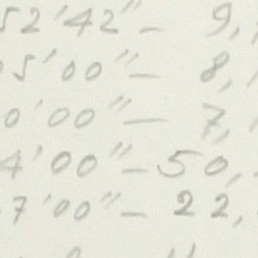 52'42"– 9,
05'00"– 8,
0'00"– 7,
4'00"–50,
7'00"– 22,